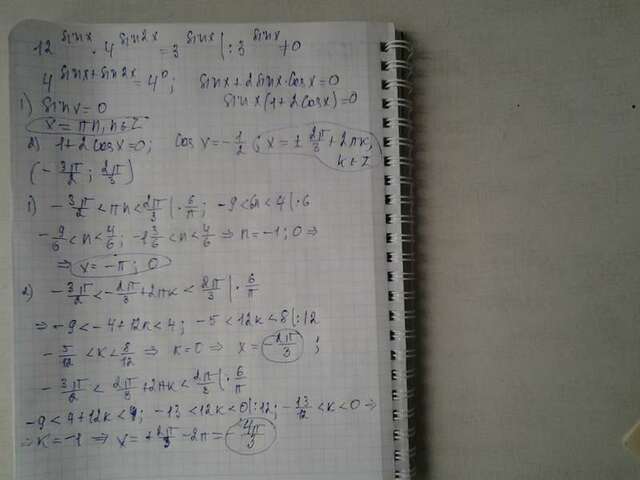 12^sinx · 4^sin2x = 3^sinx |: 3^sinx ≠0
4^sinx+sin2x = 4^0; sinx+2sinx·cosx=0
1) sinx=0 sinx(1+2cosx)=0
x=πn, n∈Z
2) 1+2cosx=0; cosx=-1/2; x=±2π/3+2πk,
k∈Z
(-3π/2; 2π/3)
1) -3π/2<πn<2π/3 |·6/π; -9<6n<4 |:6
-9/6<n<4/6; -1 3/6<n<4/6 ⇒ n=-1; 0 ⇒
⇒ x=-π; 0
2) -3π/2<-2π/3+2πk<2π/3 |·6/π
⇒ -9<-4+12k<4; -5<12k<8 |:12
-5/12<k<8/12 ⇒ k=0 ⇒ x=-2π/3;
-3π/2<2π/3+2πk<2π/3 |·6/π
-9<4+12k<4; -13<12k<0 |:12; -13/12<k<0 ⇒
⇒ k=-1 ⇒ x=+2π/3-2π=-4π/3